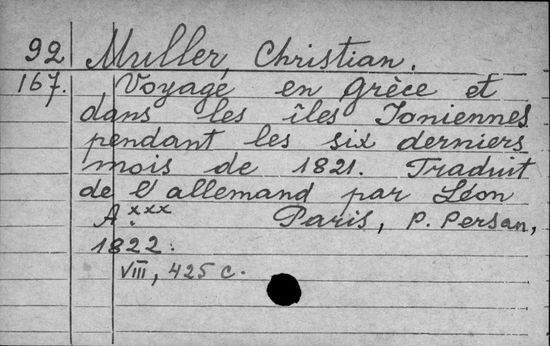 92 Muller, Christian.
167. Voyage en Grèce et
dans les îles Ioniennes
pendant les six derniers
mois de 1821. Traduit
de l'allemand par Léon
A.xxx Paris, P. Persan,
1822.
VIII, 425 c.